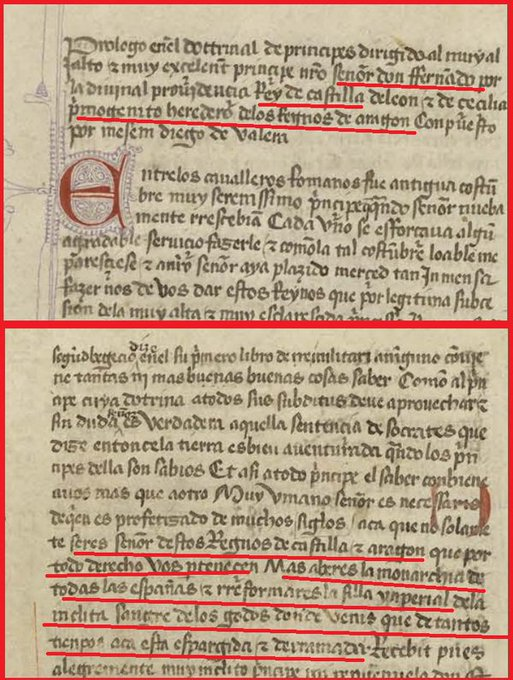 Prologo enel dottrinal de principes dirigido al muy al
to & muy excelent principe nr̃o señor don ffernãdo por
la diuinal prouidencia Rey de castilla de leon & de cecilia
p̃mogenito heredero delos Regnos de aragon Conpuesto
por mosem diego de valera
Entrelos caualleros Romanos fue antigua costũ
bre muy serenissimo p̃ncipe q̃ndo señor nueua
mente rrescebian Cada vno se esforcaua algũ
agradable seruicio fazerle & como la tal costũbre loable me
paresciese & a mỹ señor aya plazido merced tan inmensa
fazer nos de vos dar estos Reynos que por legitima subce
sion dela muy alta & muy esclarescida
segũd vegecio dize enel su p̃mero libro de rre militari a nĩguno cõuie
ne tantas ni mas buenas buenas cosas saber Como al p̃n
cipe cuya dotrina a todos sus subditos deue aprouechar &
sin duda es verdadera aquella sentencia de socrates que
dize entonce la tierra es bien auenturada q̃ndo los p̃n
cipes della son sabios Et asi a todo p̃ncipe el saber conbiene
a vos mas que a otro Muy vmano señor es necessario
de q̃en es profetizado de muchos siglos aca que no solame
te seres señor destos Regnos de castilla & aragon que por
todo derecho vos p̃tenecen Mas aberes la monarchia de
todas las españas & rreformares la silla ynperial dela
inclita sangre delos godos donde venis que de tantos
tienpos aca esta espargida & derramada Recebit pues
alegremente muy inclito p̃ncipe